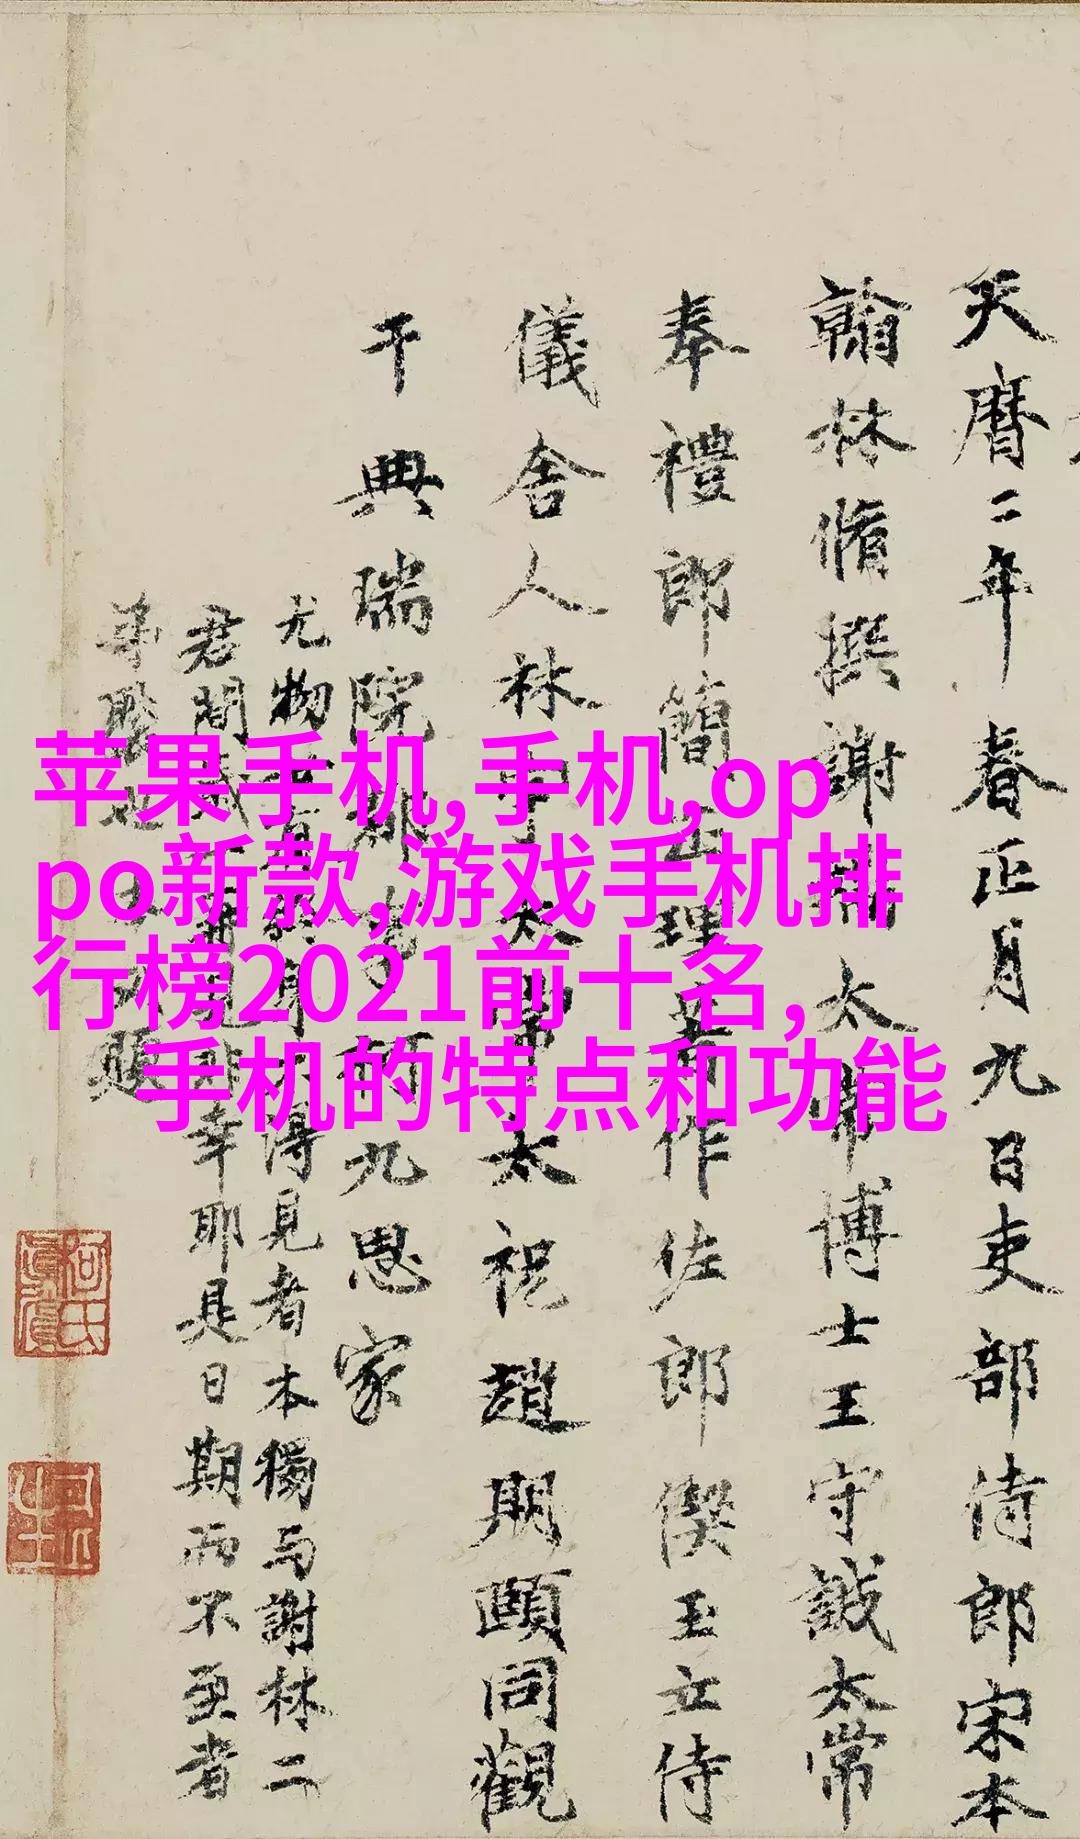 苹果手机,手机,op
po新款,游戏手机排
行榜2021前十名,
手机的特点和功能
天曆二年春正月九日吏部侍郎宋本
翰林脩撰謝端太常博士王守誠太常
奉禮郎簡正理著作佐郎偰玉立侍
儀舍人林宇太常太祝趙期頤同觀
于典瑞院都事柯九思家
尤物世有得見者本獨与謝林二
君間幸耶是日期而不至者